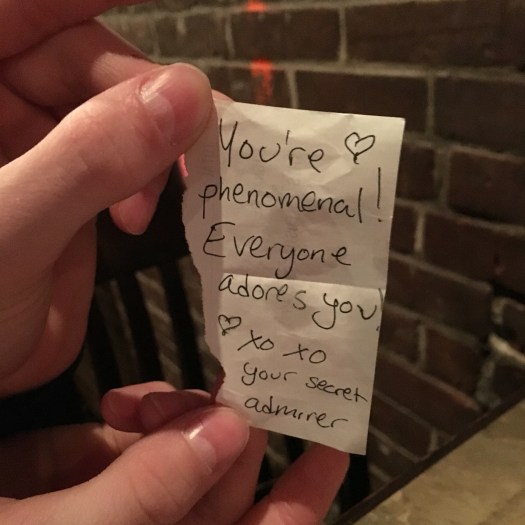 You're ♡
phenomenal!
Everyone
adores you!
♡ xo xo
your secret
admirer